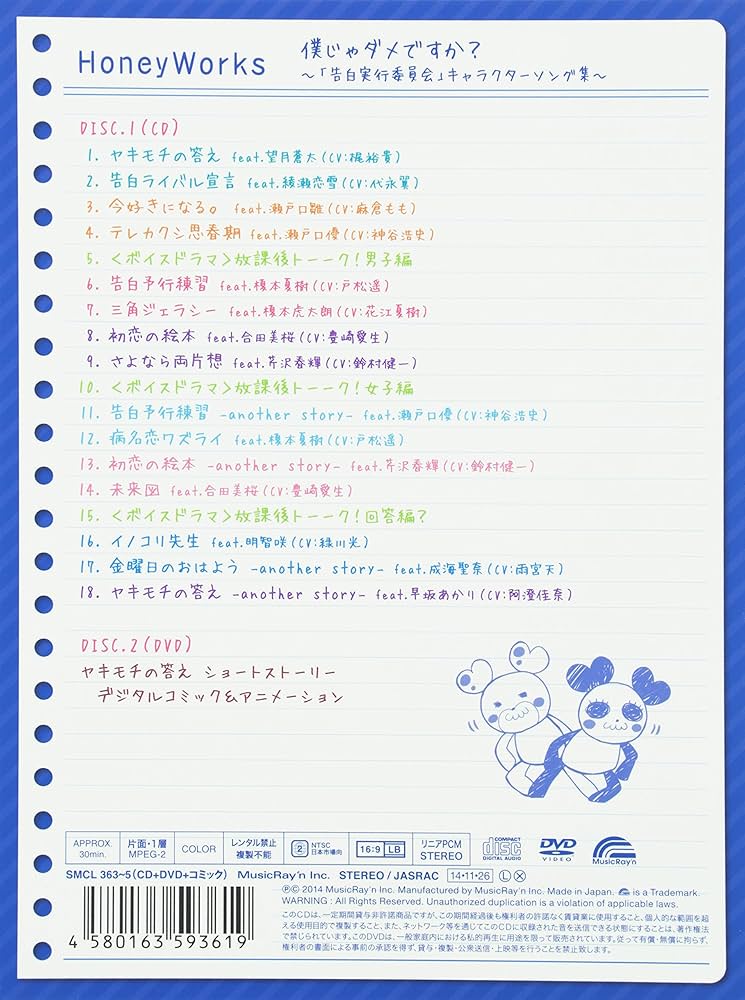 HoneyWorks
僕じゃダメですか?
〜「告白実行委員会」キャラクターソング集〜
DISC.1(CD)
1. ヤキモチの答え feat.望月蒼太(CV:梶裕貴)
2. 告白ライバル宣言 feat.綾瀬恋雪(CV:代永翼)
3. 今好きになる。 feat.瀬戸口雛(CV:麻倉もも)
4. テレカクシ思春期 feat.瀬戸口優(CV:神谷浩史)
5. <ボイスドラマ>放課後トーーク!男子編
6. 告白予行練習 feat.榎本夏樹(CV:戸松遥)
7. 三角ジェラシー feat.榎本虎太朗(CV:花江夏樹)
8. 初恋の絵本 feat.合田美桜(CV:豊崎愛生)
9. さよなら両片想 feat.芹沢春輝(CV:鈴村健一)
10. <ボイスドラマ>放課後トーーク!女子編
11. 告白予行練習 -another story- feat.瀬戸口優(CV:神谷浩史)
12. 病名恋ワズライ feat.榎本夏樹(CV:戸松遥)
13. 初恋の絵本 -another story- feat.芹沢春輝(CV:鈴村健一)
14. 未来図 feat.合田美桜(CV:豊崎愛生)
15. <ボイスドラマ>放課後トーーク!回答編?
16. イノコリ先生 feat.明智咲(CV:緑川光)
17. 金曜日のおはよう -another story- feat.成海聖奈(CV:雨宮天)
18. ヤキモチの答え -another story- feat.早坂あかり(CV:阿澄佳奈)
DISC.2(DVD)
ヤキモチの答え ショートストーリー
デジタルコミック&アニメーション
APPROX. 30min.
片面・1層 MPEG-2
COLOR
レンタル禁止 複製不能
2 NTSC 日本市場向
16:9 LB
リニアPCM STEREO
COMPACT disc DIGITAL AUDIO
DVD VIDEO
MusicRay'n
SMCL 363~5(CD+DVD+コミック) MusicRay'n Inc. STEREO/JASRAC 14・11・26 L X
℗© 2014 MusicRay'n Inc. Manufactured by MusicRay'n Inc. Made in Japan. is a Trademark.
WARNING : All Rights Reserved. Unauthorized duplication is a violation of applicable laws.
このCDは、一定期間貸与非許諾商品ですが、この期間経過後も権利者の許諾なく賃貸業に使用すること、個人的な範囲を超
える使用目的で複製すること、また、ネットワーク等を通じてこのCDに収録された音を送信できる状態にすることは、著作権法
で禁じられています。このDVDは、一般家庭内における私的再生に用途を限って販売されています。従って有償・無償に拘らず、
権利者の書面による事前の承認を得ず、貸与・複製・公衆送信・上映等を行うことを禁止致します。
4 580163 593619